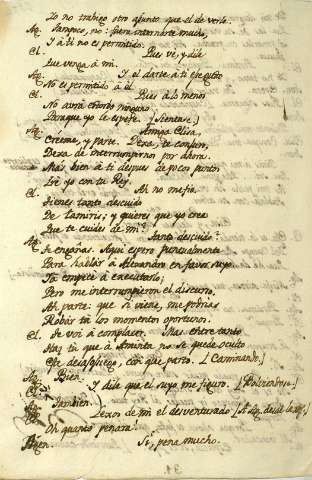 Yo no trahigo otro asunto que el de verle.
Ag. Tampoco, no: fuera internarte mucho,
Y á tí no es permitido.
El. Pues vé, y dile
Que venga á mi.
Ag. Y el darte á ti
No es permitido á él.
El. Pues á lo menos
No avrá estorbo ninguno
Paraque yo le espere. (Sientase.)
Ag. Amiga Elisa,
Créeme, y parte. Dexa, te
Dexa de interrumpirnos por ahora.
Mas bien á ti despues de pocos puntos
Iré yo con tu Rey.
El. Ah no me fio.
Tienes tanto descuido
De Tamiris; y quieres que yo crea
Que te cuides de mi?
Ag. Tanto descuido?
Te engañas. Aqui espero puntualmente
Para hablar á Alexandro en favor suyo.
Ya empecé á executarlo;
Pero me interrumpieron el discurso.
Ah parte: que si viene, me podrias
Robar tú los momentos oportunos.
El. Te voi á complacer. Mas entretanto
Haz tú que á Aminta no se quede oculto
Este desasosiego, con que parto. [Caminando.)
Ag. Bien.
El. Y dile que el suyo me figuro. [Volviendose.)
Ag. Tambien.
El. Lexos de mi el desventurado
Oh quanto penará!
Agen. Si, pena mucho.